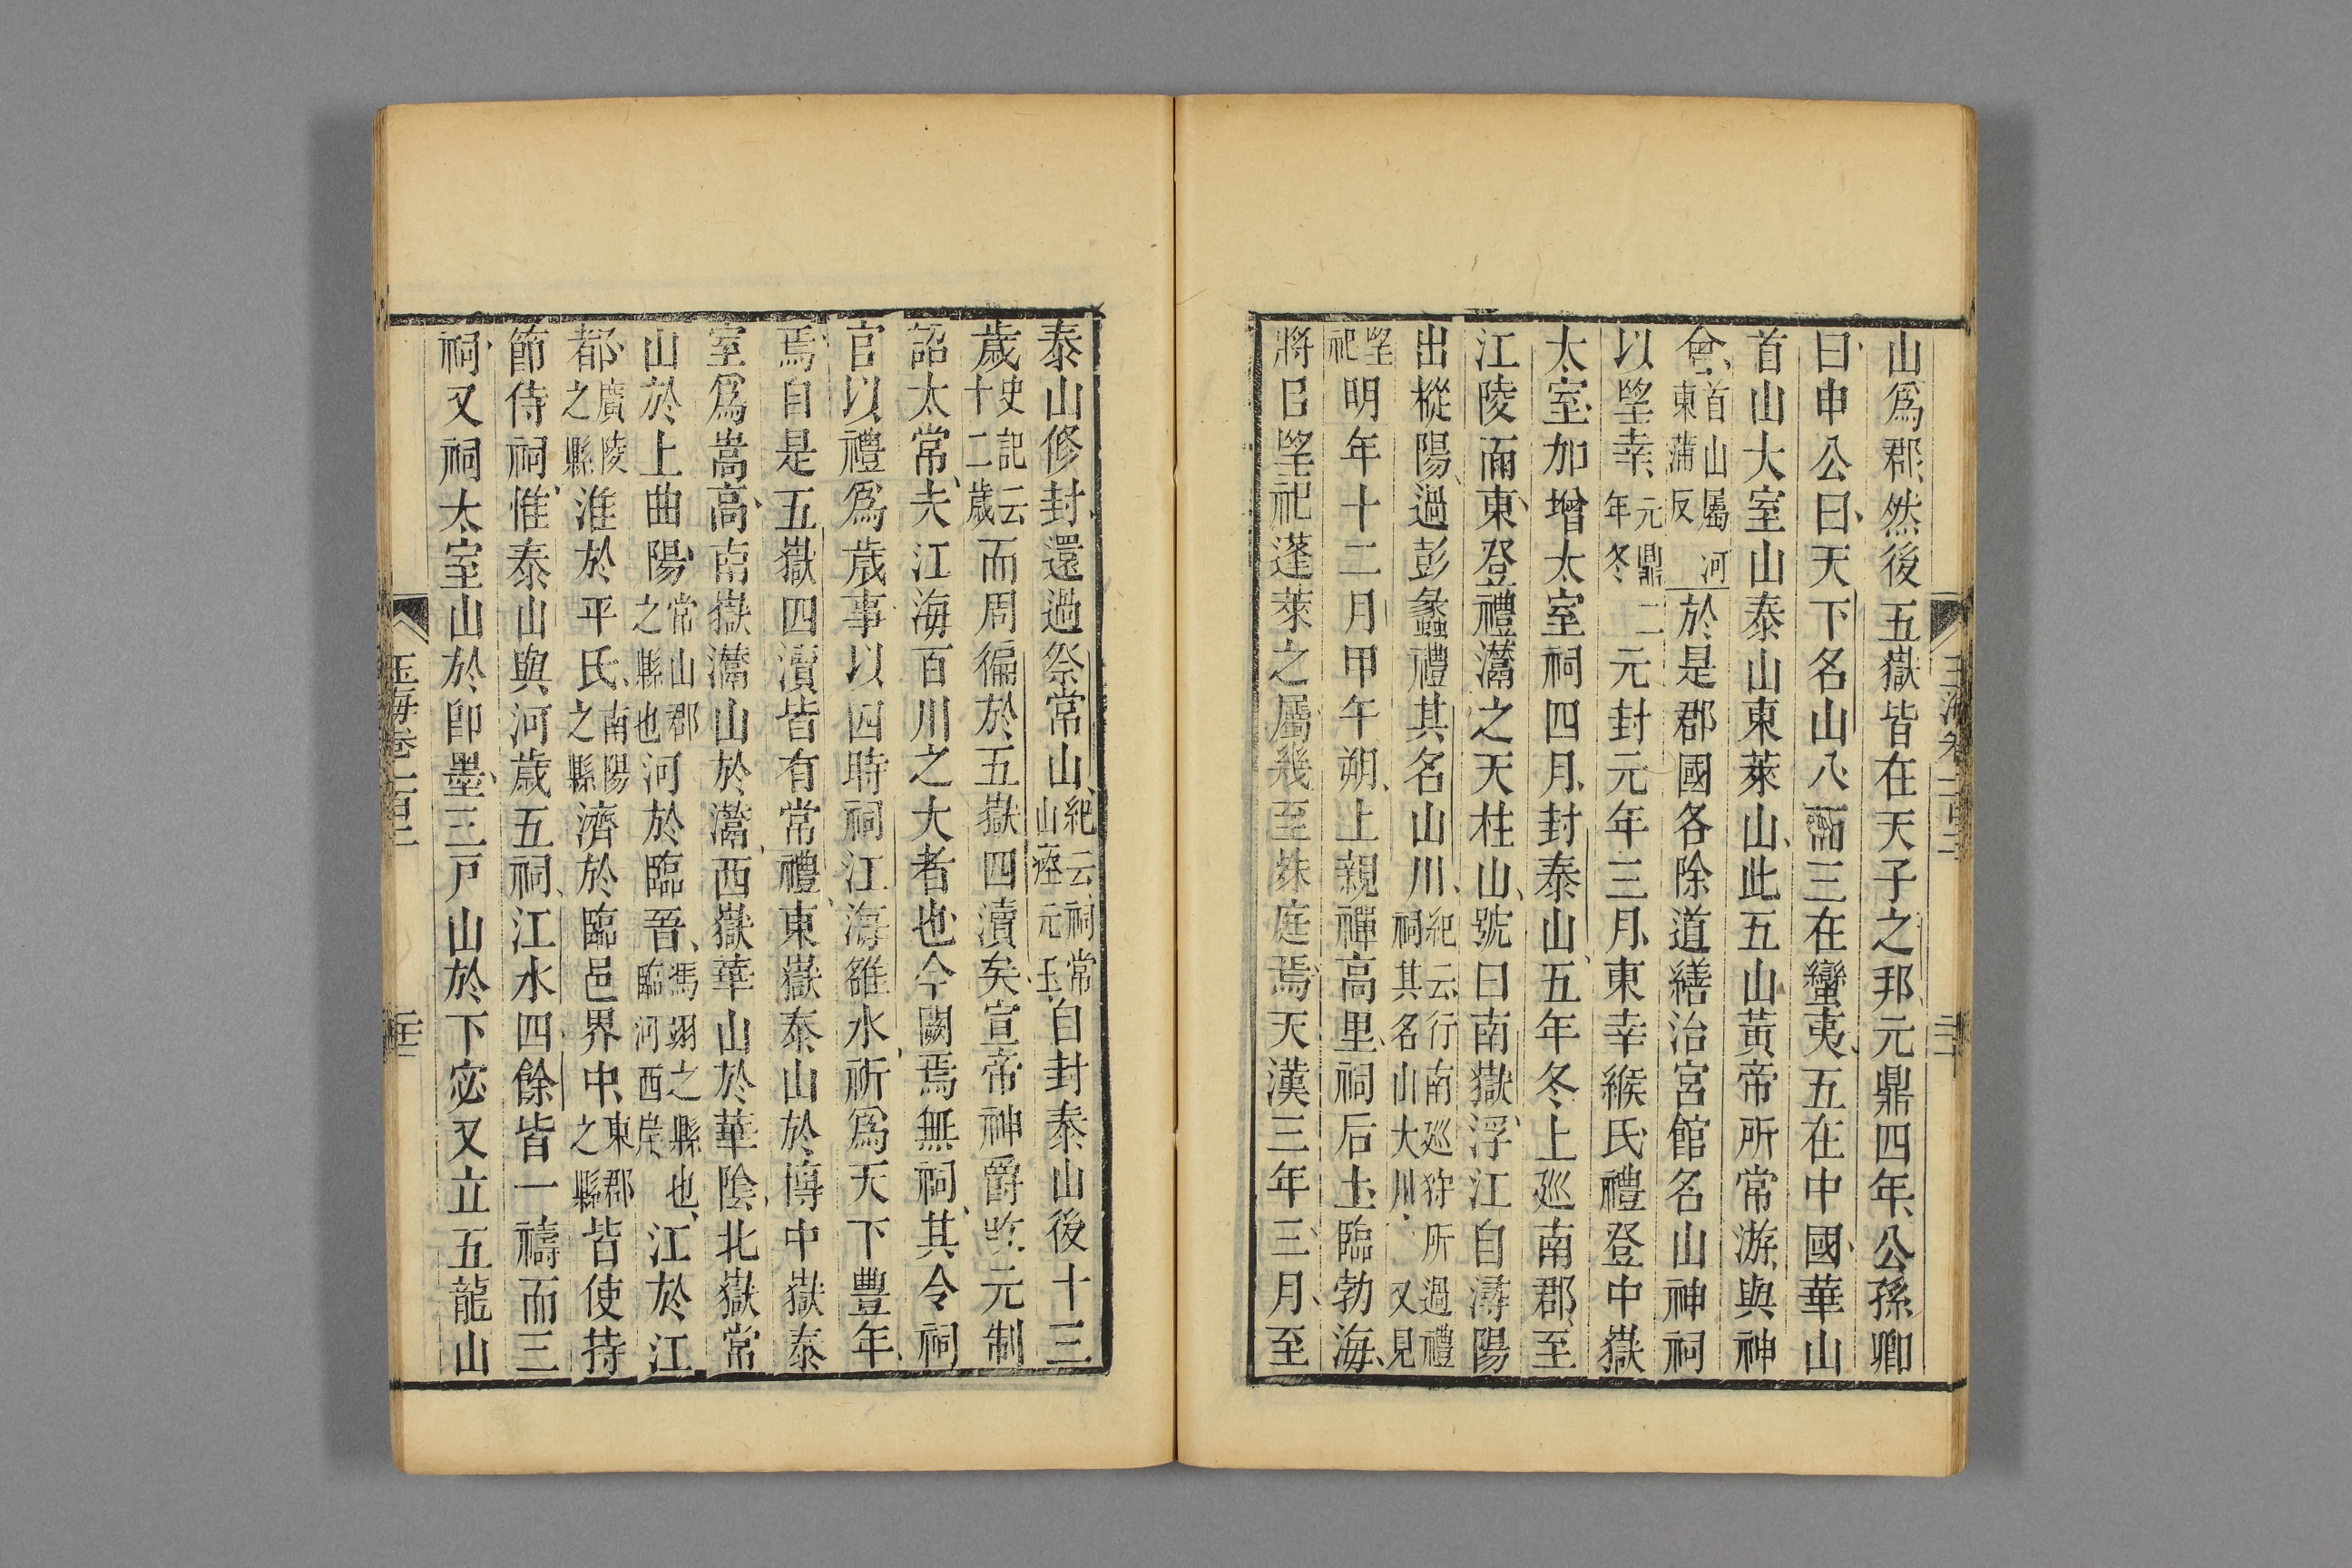 山爲郡然後五嶽皆在天子之邦元鼎四年公孫卿
曰申公曰天下名山八而三在蠻夷五在中國華山
首山大室山泰山東萊山此五山黃帝所常游與神
會首山屬河東蒲反於是郡國各除道繕治宮館名山神祠
以望幸元鼎二年冬元封元年三月東幸緱氏禮登中嶽
太室加增太室祠四月封泰山五年冬上巡南郡至
江陵而東登禮灊之天柱山號曰南嶽浮江自潯陽
出樅陽過彭蠡禮其名山川紀云行南巡狩所過禮祠其名山大川又見
望祀明年十二月甲午朔上親禪高里祠后土臨勃海
將目望祀蓬萊之屬幾至殊庭焉天漢三年三月至
泰山修封還過祭常山紀云祠常山瘞元玉自封泰山後十三
歲史記云十二歲而周徧於五嶽四瀆矣宣帝神爵改元制
詔太常夫江海百川之大者也今闕焉無祠其令祠
官以禮爲歲事以四時祠江海雒水祈爲天下豐年
焉自是五嶽四瀆皆有常禮東嶽泰山於博中嶽泰
室爲嵩高南嶽灊山於灊西嶽華山於華陰北嶽常
山於上曲陽常山郡之縣也河於臨晉馮翊之縣也臨河西岸江於江
都廣陵之縣淮於平氏南陽之縣濟於臨邑界中東郡之縣皆使持
節侍祠惟泰山與河歲五祠江水四餘皆一禱而三
祠又祠太室山於卽墨三戶山於下密又立五龍山
玉海卷一百二